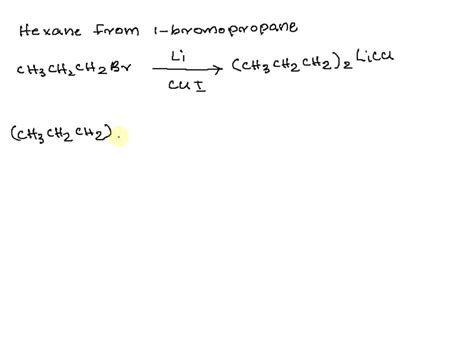 Hexane from 1-bromopropane
CH3CH2CH2Br Li CuI → (CH3CH2CH2)2 LiCu
(CH3CH2CH2)